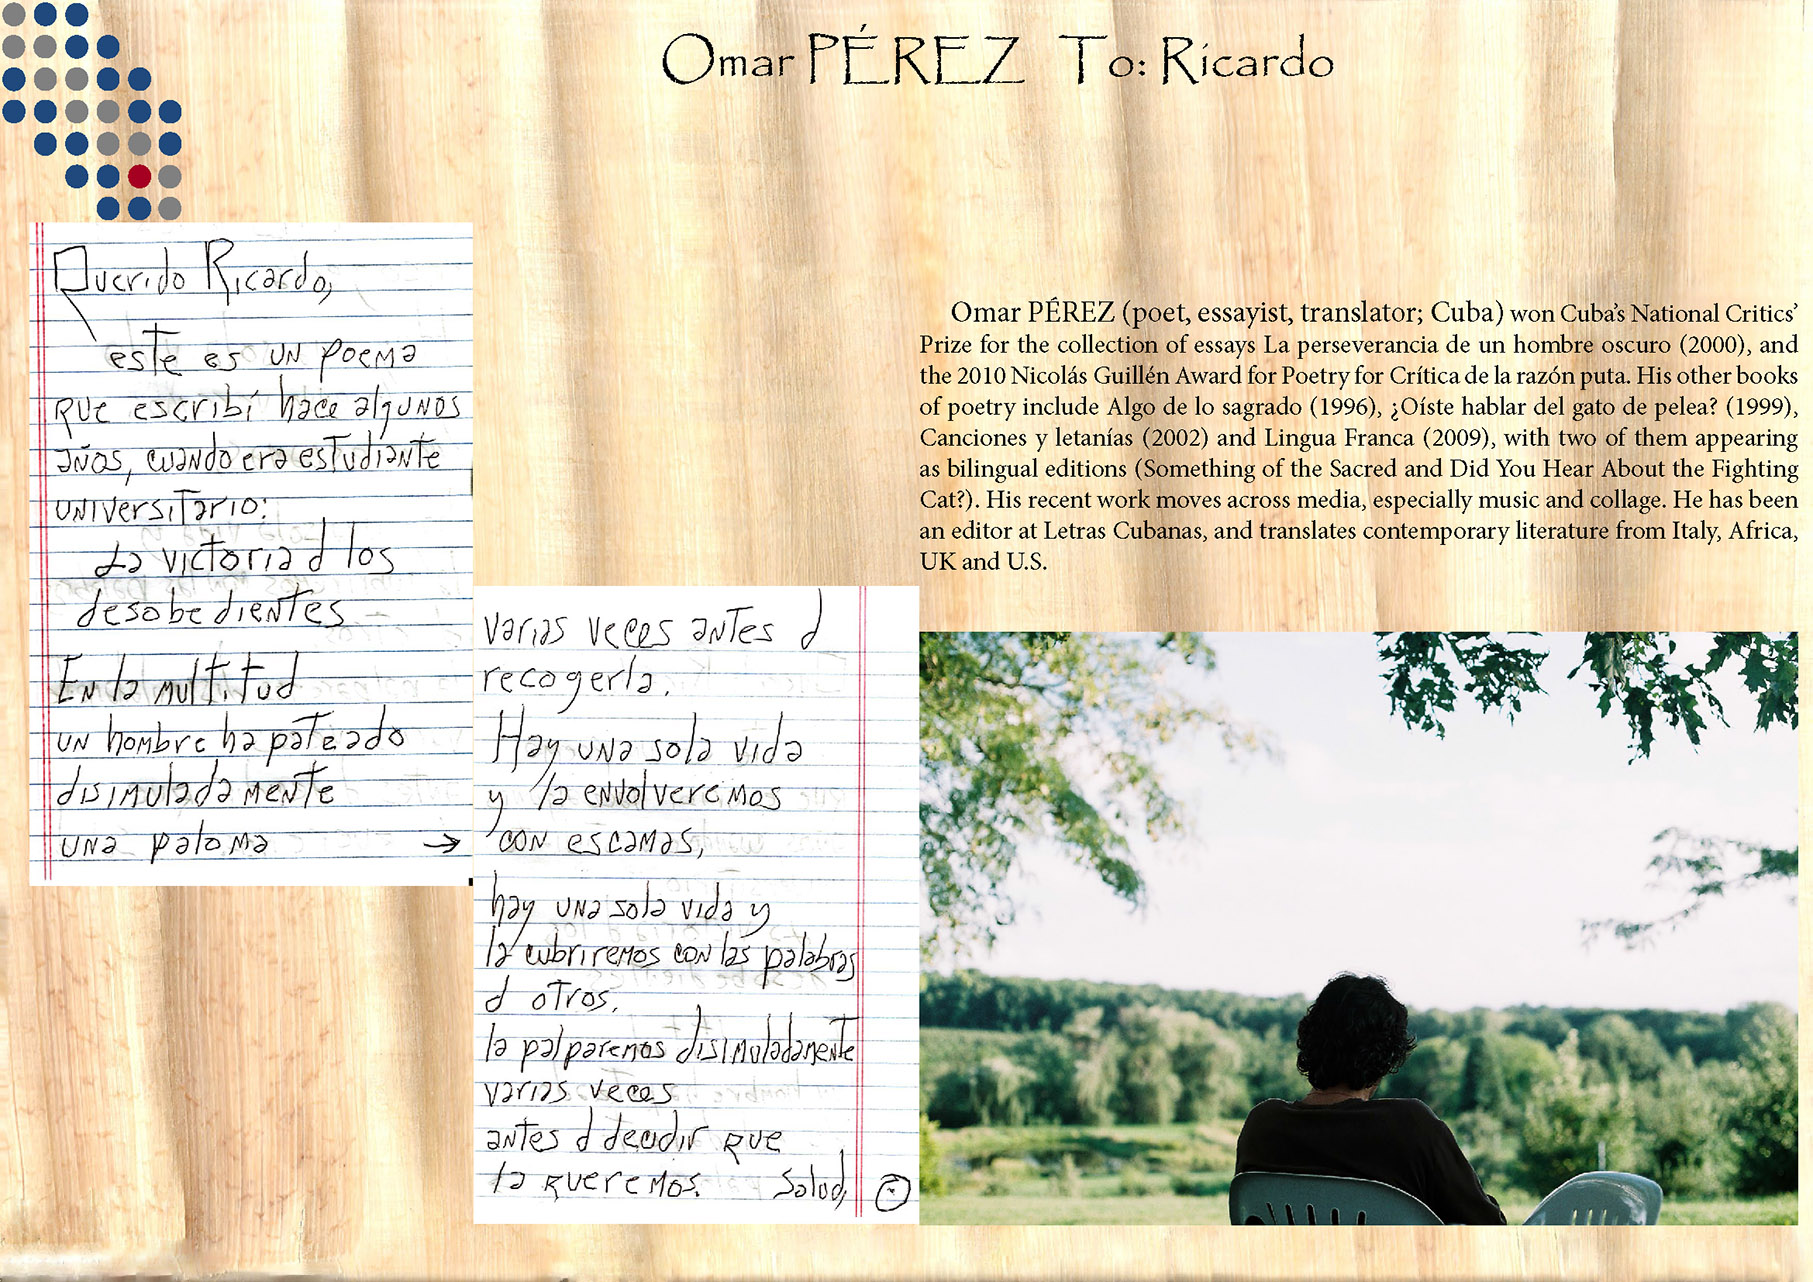 Omar PÉREZ To: Ricardo
Querido Ricardo,
este es un poema
que escribí hace algunos
años, cuando era estudiante
universitario:
La victoria d los
desobedientes –
En la multitud
un hombre ha pateado
disimuladamente
una paloma →
varias veces antes d
recogerla.
Hay una sola vida
y la envolveremos
con escamas,
hay una sola vida y
la cubriremos con las palabras
d otros.
la palparemos disimuladamente
varias veces
antes d decidir que
la queremos. Salud,
Omar PÉREZ (poet, essayist, translator; Cuba) won Cuba's National Critics'
Prize for the collection of essays La perseverancia de un hombre oscuro (2000), and
the 2010 Nicolás Guillén Award for Poetry for Crítica de la razón puta. His other books
of poetry include Algo de lo sagrado (1996), ¿Oíste hablar del gato de pelea? (1999),
Canciones y letanías (2002) and Lingua Franca (2009), with two of them appearing
as bilingual editions (Something of the Sacred and Did You Hear About the Fighting
Cat?). His recent work moves across media, especially music and collage. He has been
an editor at Letras Cubanas, and translates contemporary literature from Italy, Africa,
UK and U.S.